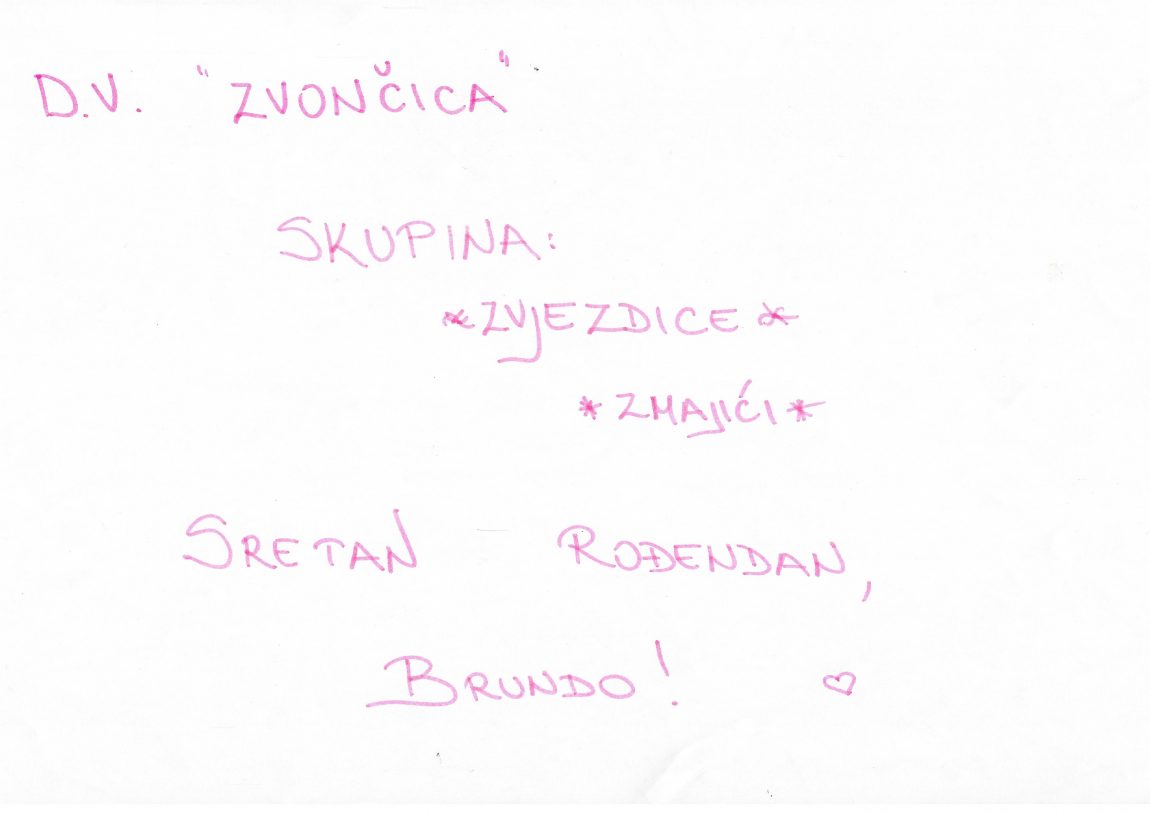 D.V. "ZVONČICA"
SKUPINA:
*ZVJEZDICE*
*ZMAJIĆI*
SRETAN ROĐENDAN,
BRUNDO! ♡